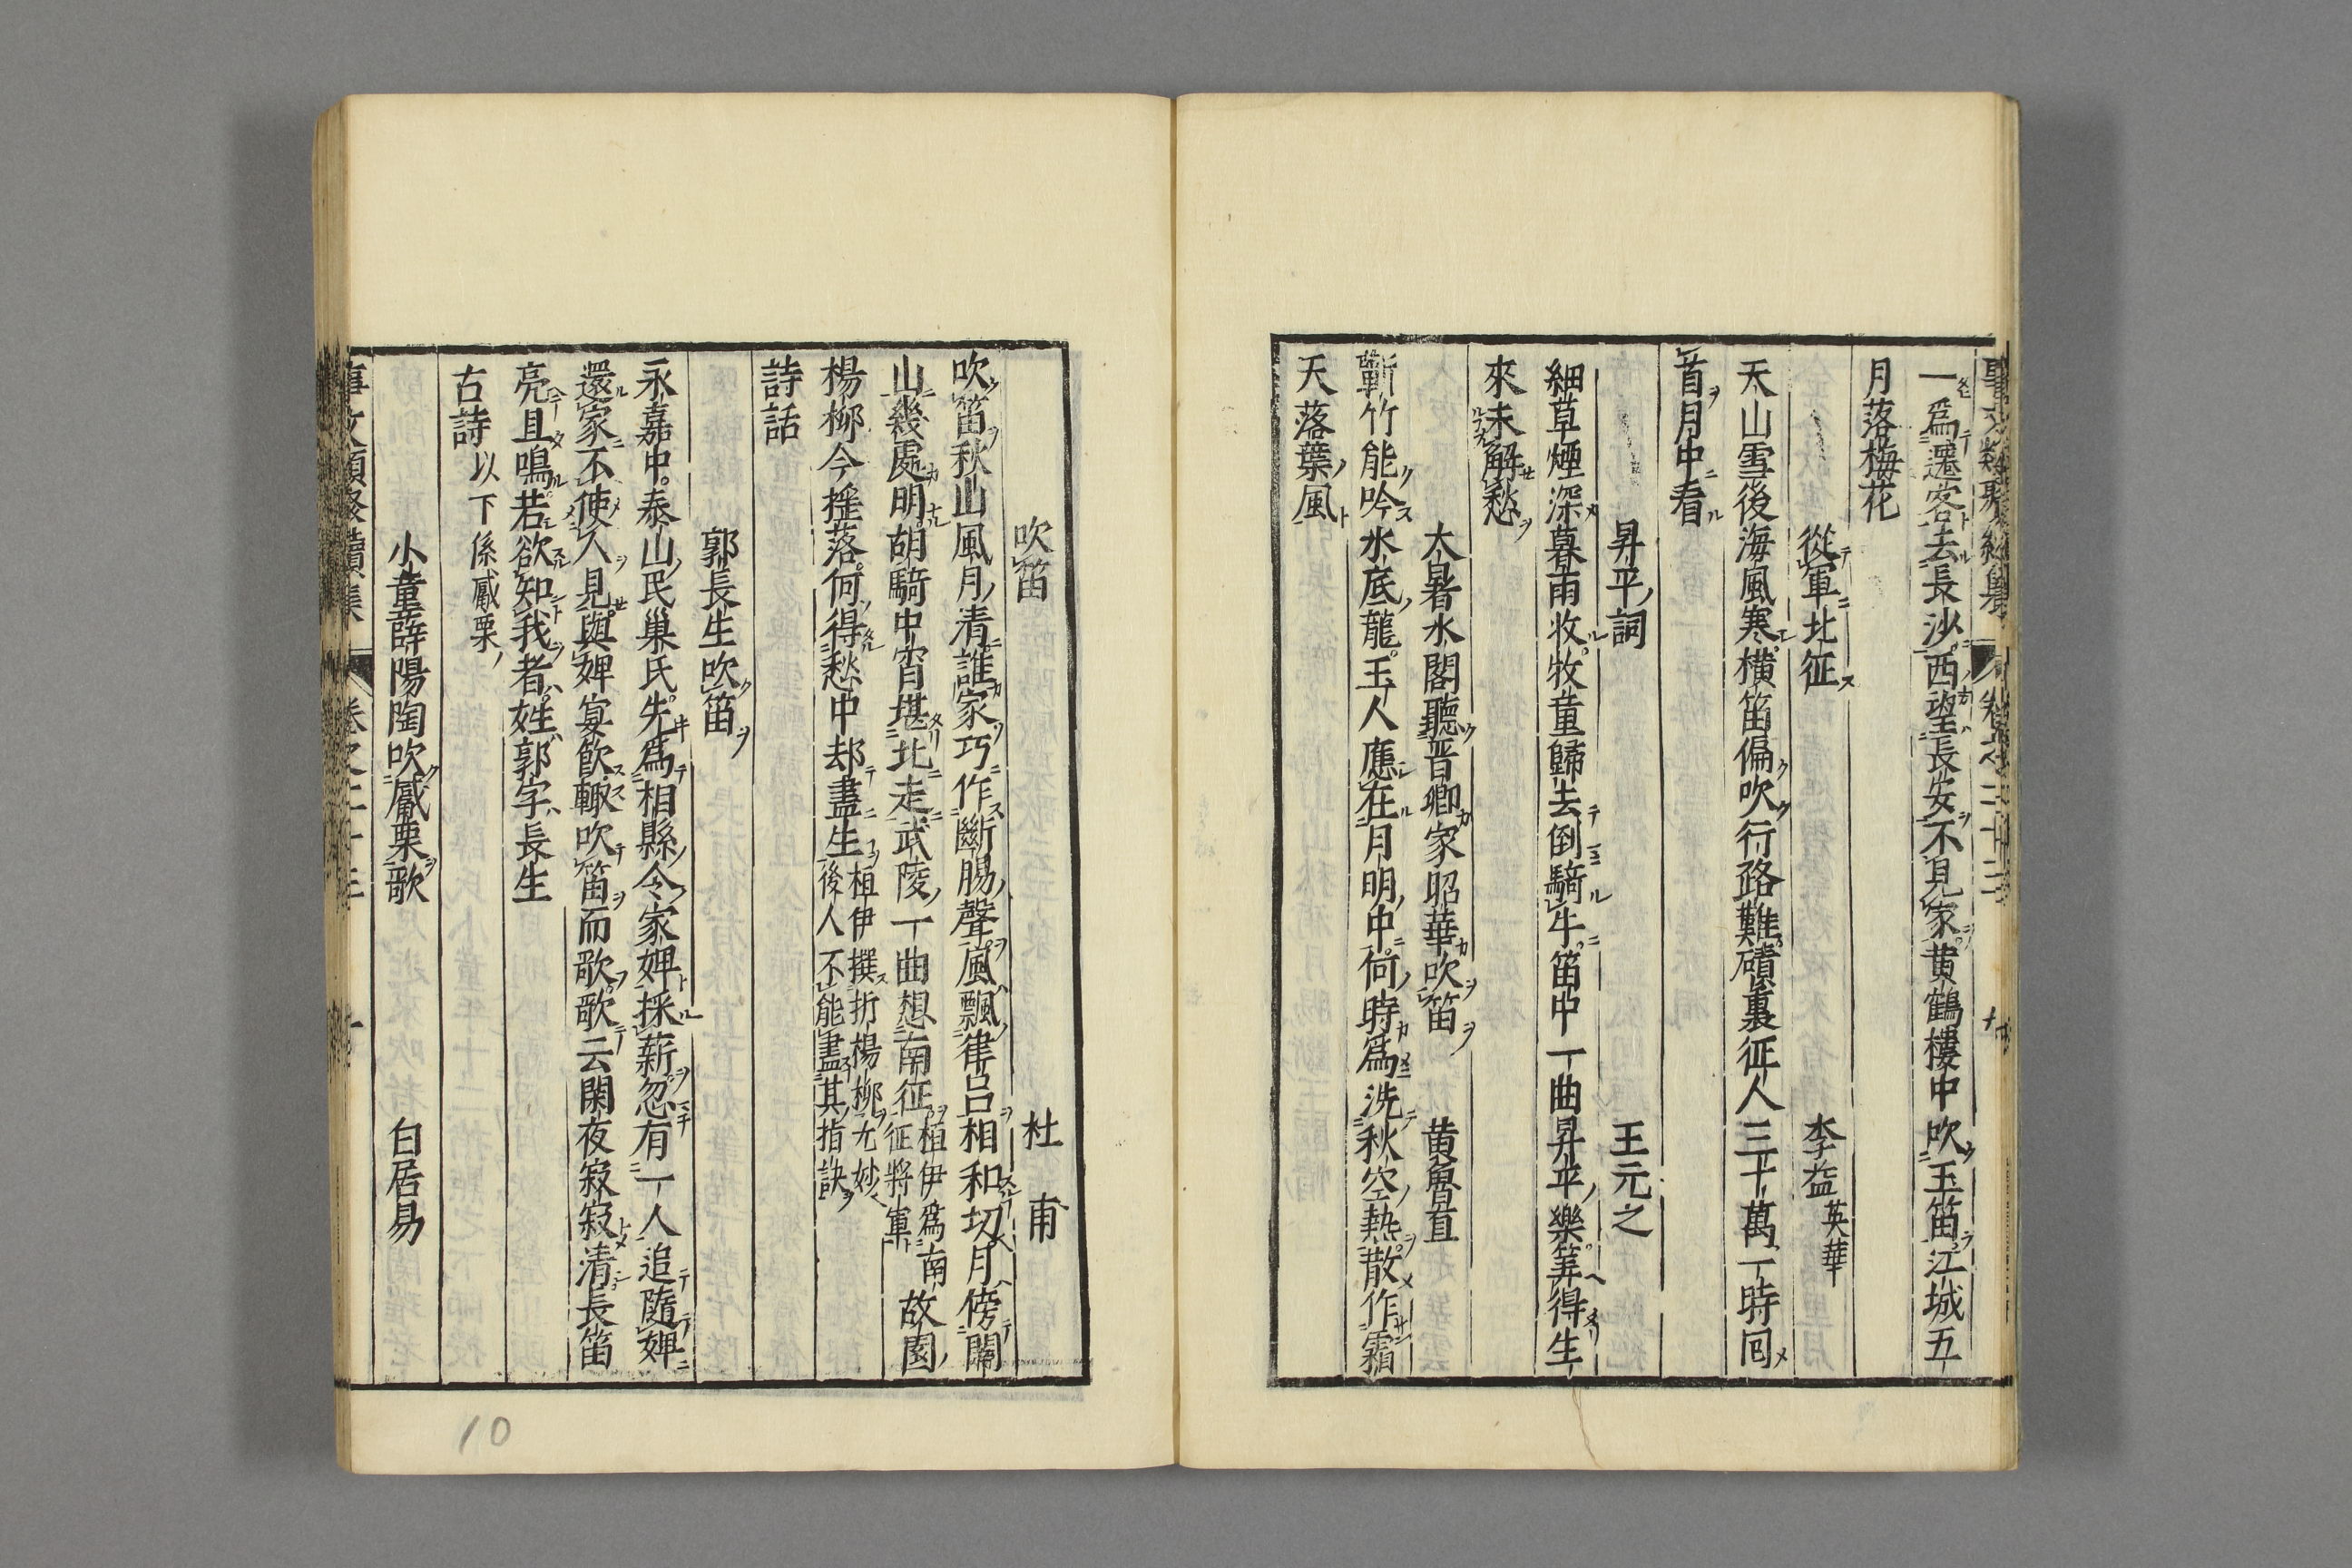 一爲遷客去長沙西望長安不見家黄鶴樓中吹玉笛江城五
月落梅花
從軍北征 李益 英華
天山雪後海風寒橫笛偏吹行路難磧裏征人三十萬一時囘
首月中看
昇平詞 王元之
細草煙深暮雨收牧童歸去倒騎牛笛中一曲昇平樂筭得生
來未解愁
大暑水閣聽晋卿家昭華吹笛 黄魯直
蘄竹能吟水底龍玉人應在月明中何時爲洗秋空熱散作霜
天落葉風
吹笛 杜甫
吹笛秋山風月清誰家巧作斷腸聲風飄律呂相和切月傍關
山幾處明胡騎中宵堪北走武陵一曲想南征 桓伊爲南征將軍 故園
楊柳今揺落何得愁中却盡生 桓伊撰折楊柳尤妙後人不能盡其指訣
詩話
郭長生吹笛
永嘉中泰山民巢氏先爲相縣令家婢採薪忽有一人追隨婢
還家不使人見與婢宴飲輙吹笛而歌歌云閑夜寂寂清長笛
亮且鳴若欲知我者姓郭字長生
古詩 以下係觱栗
小童薛陽陶吹觱栗歌 白居易
事文類聚續集 卷之二十三
10